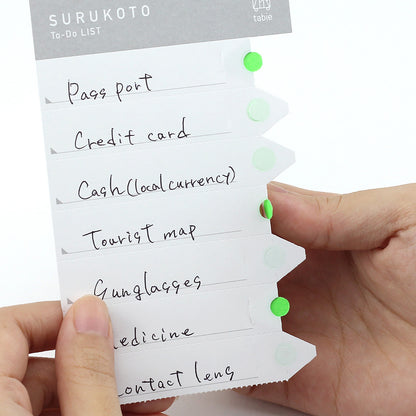 SURUKOTO
To-Do LIST
table
Pass port
Credit card
Cash (local currency)
Tourist map
Sunglasses
edicine
ontact lens